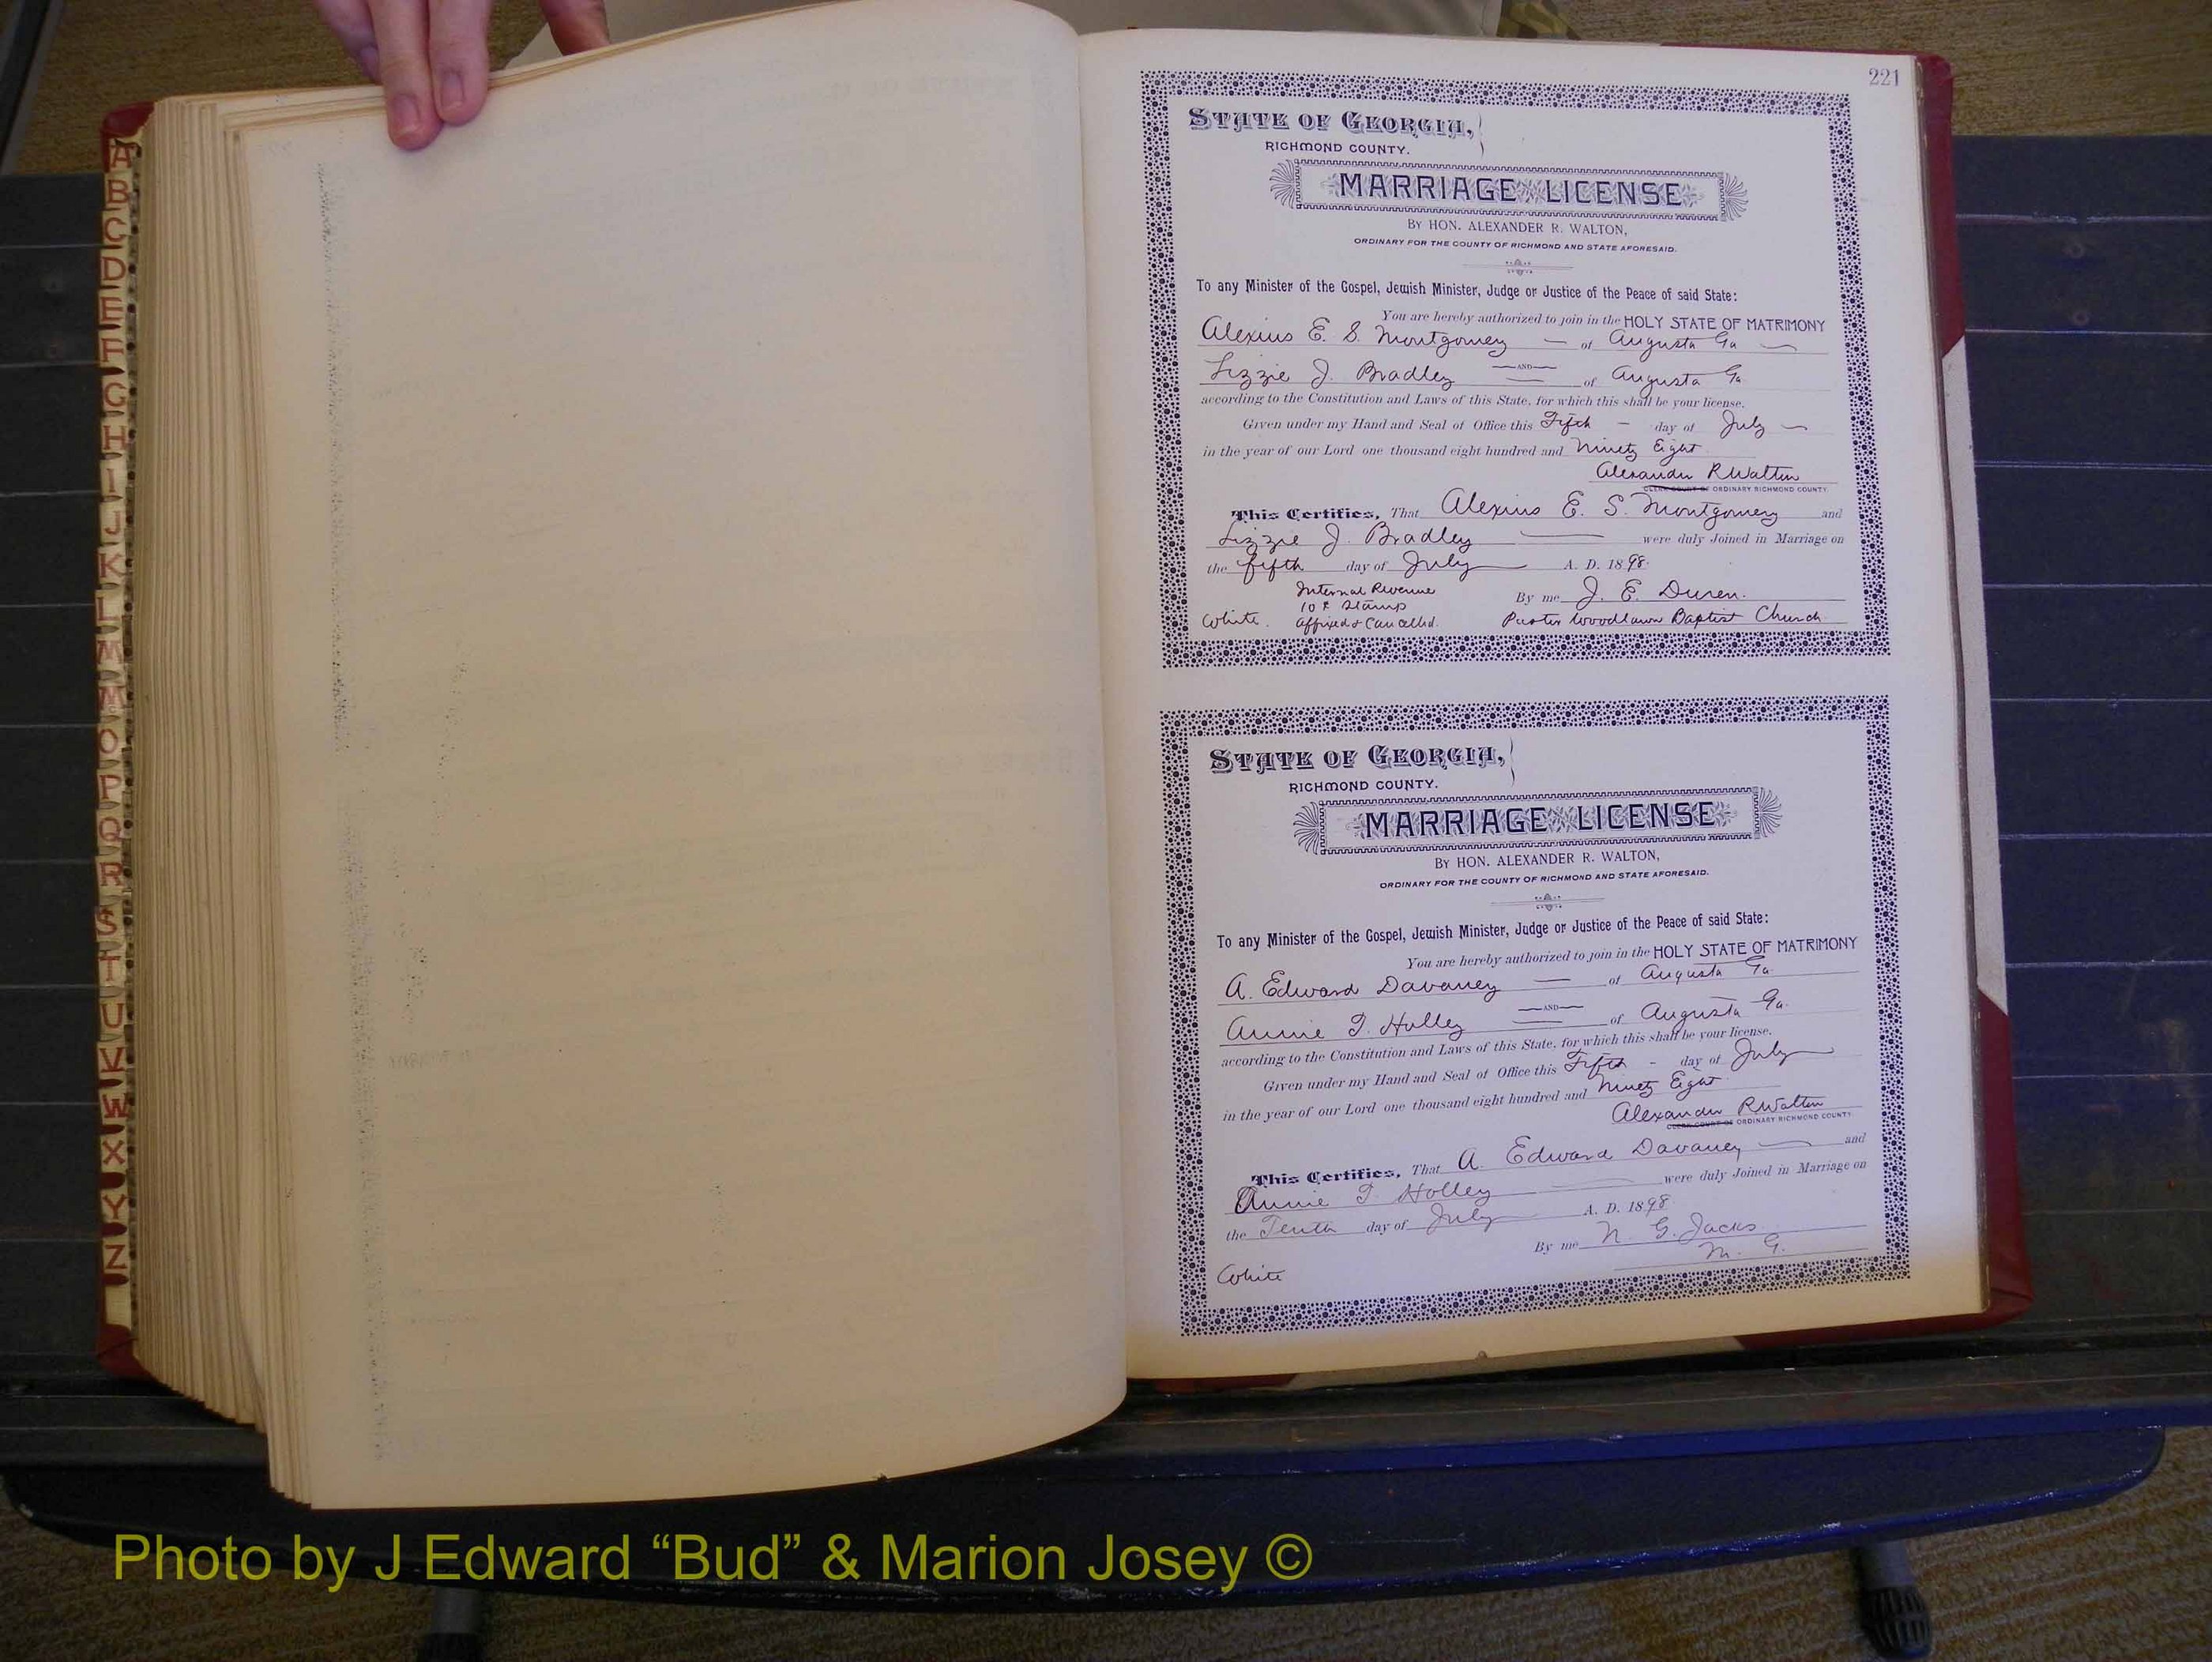 A
B
C
D
E
F
G
H
I
J
K
L
M
Mc
O
P
Q
R
S
T
U
V
W
X
Y
Z
221
STATE OF GEORGIA,
RICHMOND COUNTY.
MARRIAGE LICENSE
BY HON. ALEXANDER R. WALTON,
ORDINARY FOR THE COUNTY OF RICHMOND AND STATE AFORESAID.
To any Minister of the Gospel, Jewish Minister, Judge or Justice of the Peace of said State:
You are hereby authorized to join in the HOLY STATE OF MATRIMONY
Alexius E. S. Montgomery — of Augusta Ga —
—AND—
Lizzie J. Bradley — of Augusta Ga.
according to the Constitution and Laws of this State, for which this shall be your license.
Given under my Hand and Seal of Office this Fifth - day of July —
in the year of our Lord one thousand eight hundred and Ninety Eight
Alexander R Walton
CLERK COURT OF ORDINARY RICHMOND COUNTY.
This Certifies, That Alexius E. S. Montgomery and
Lizzie J. Bradley — were duly Joined in Marriage on
the fifth day of July — A. D. 1898.
Internal Revenue
10¢ Stamp
affixed & Cancelled.
By me J. E. Duren.
White.
Pastor Woodlawn Baptist Church
STATE OF GEORGIA,
RICHMOND COUNTY.
MARRIAGE LICENSE
BY HON. ALEXANDER R. WALTON,
ORDINARY FOR THE COUNTY OF RICHMOND AND STATE AFORESAID.
To any Minister of the Gospel, Jewish Minister, Judge or Justice of the Peace of said State:
You are hereby authorized to join in the HOLY STATE OF MATRIMONY
A. Edward Davaney — of Augusta Ga.
—AND—
Annie I. Holley — of Augusta Ga.
according to the Constitution and Laws of this State, for which this shall be your license.
Given under my Hand and Seal of Office this Fifth - day of July —
in the year of our Lord one thousand eight hundred and Ninety Eight
Alexander R Walton
CLERK COURT OF ORDINARY RICHMOND COUNTY.
This Certifies, That A. Edward Davaney — and
Annie I. Holley — were duly Joined in Marriage on
the Tenth day of July A. D. 1898
By me N. G. Jacks
M. G.
White
Photo by J Edward “Bud” & Marion Josey ©